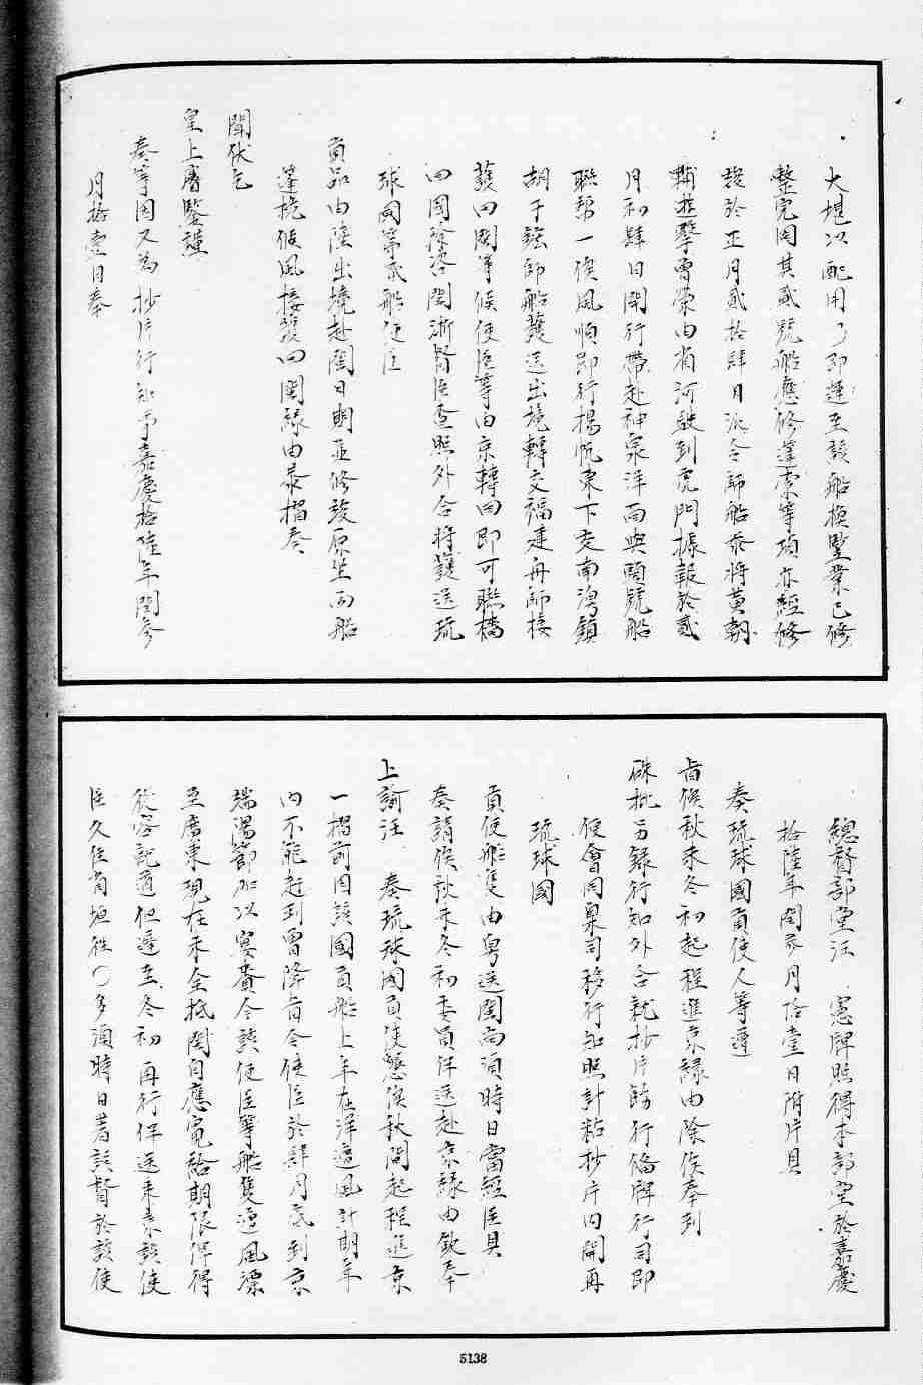 大堪以配用了即運至該船換竪業已修
整完固其貳號船應修篷索等項亦經修
竣於正月貳拾肆日派令師船叅將黄朝
鞴遊擊曾榮由省河駛到虎門據報於貳
月初肆日開行帶赴神泉洋面與頭號船
聯幇一俟風順即行揚帆東下交南澳鎮
胡于鋐師船護送出境轉交福建舟師接
護回閩等候使臣等由京轉回即可聯檣
回國除咨閩浙督臣查照外合將護送琉
球國第貳船使臣
貢品由陸出境赴閩日期並修竣原坐兩船
篷桅候風接護回閩緣由恭摺奏
聞伏乞
皇上睿鑒謹
奏等因又為抄片行知事嘉慶拾陸年閏叁
月拾壹日奉
總督部堂汪 憲牌照得本部堂於嘉慶
拾陸年閏叁月拾壹日附片具
奏琉球國貢使人等遵
旨俟秋末冬初起程進京緣由除俟奉到
硃批另錄行知外合就抄片餙行備牌行司即
便會同臬司移行知照計粘抄片内開再
琉球國
貢使船隻由粤送閩尚須時日當經臣具
奏請俟秋末冬初委員伴送赴京緣由欽奉
上諭汪 奏琉球國貢使懇俟秋間起程進京
一摺前因該國貢船上年在洋遭風計期年
内不能趕到曾降旨令使臣於肆月底到京
端陽節加以宴賚今該使臣等船隻遭風漂
至廣東現在未全抵閩自應寬給期限俾得
從容記適但遲至冬初再行伴送来京該使
臣久住省垣徃〇多須時日著該督於該使
5138